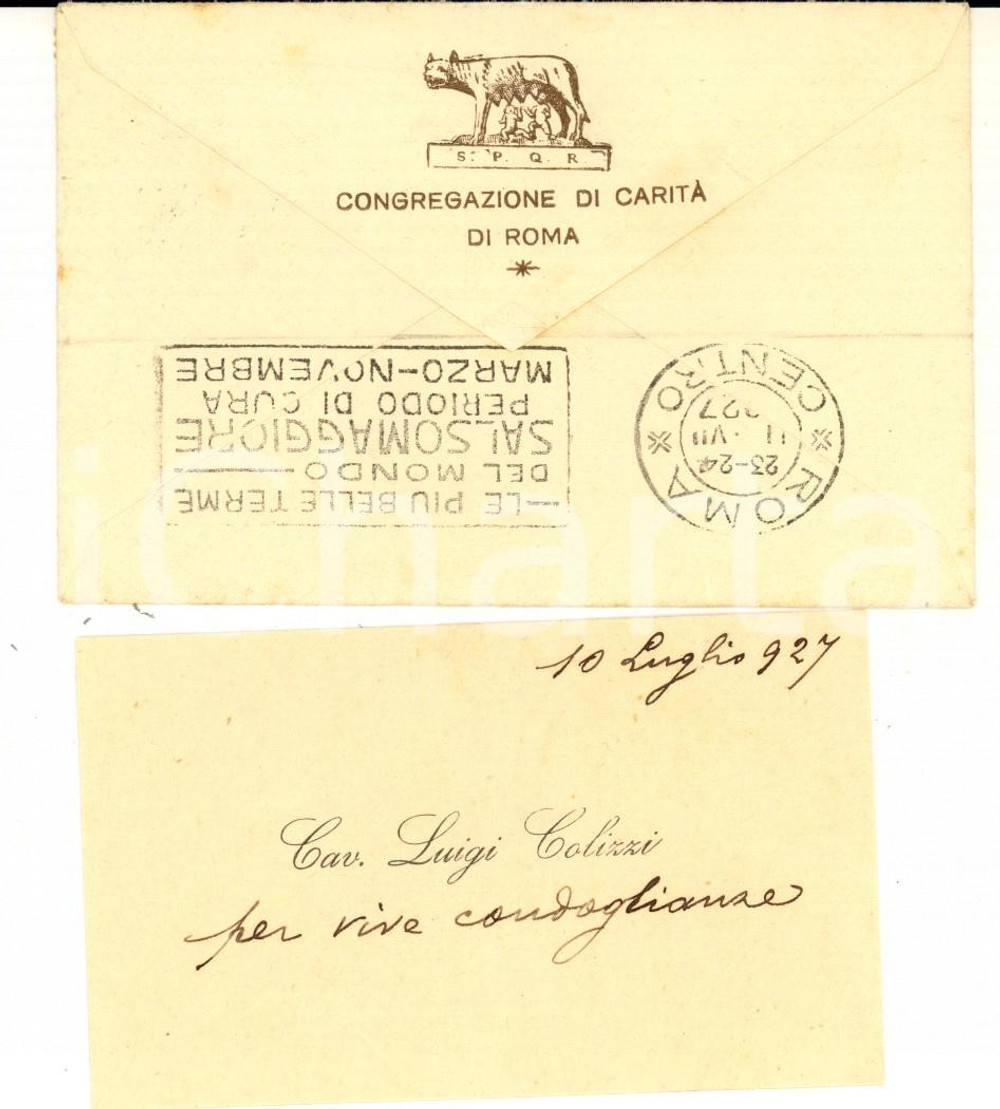 S. P. Q. R.
CONGREGAZIONE DI CARITÀ
DI ROMA
— LE PIU BELLE TERME
DEL MONDO —
SALSOMAGGIORE
PERIODO DI CURA
MARZO-NOVEMBRE
ROMA CENTRO
23-24
11·VII
927
10 Luglio 927
Cav. Luigi Colizzi
per vive condoglianze